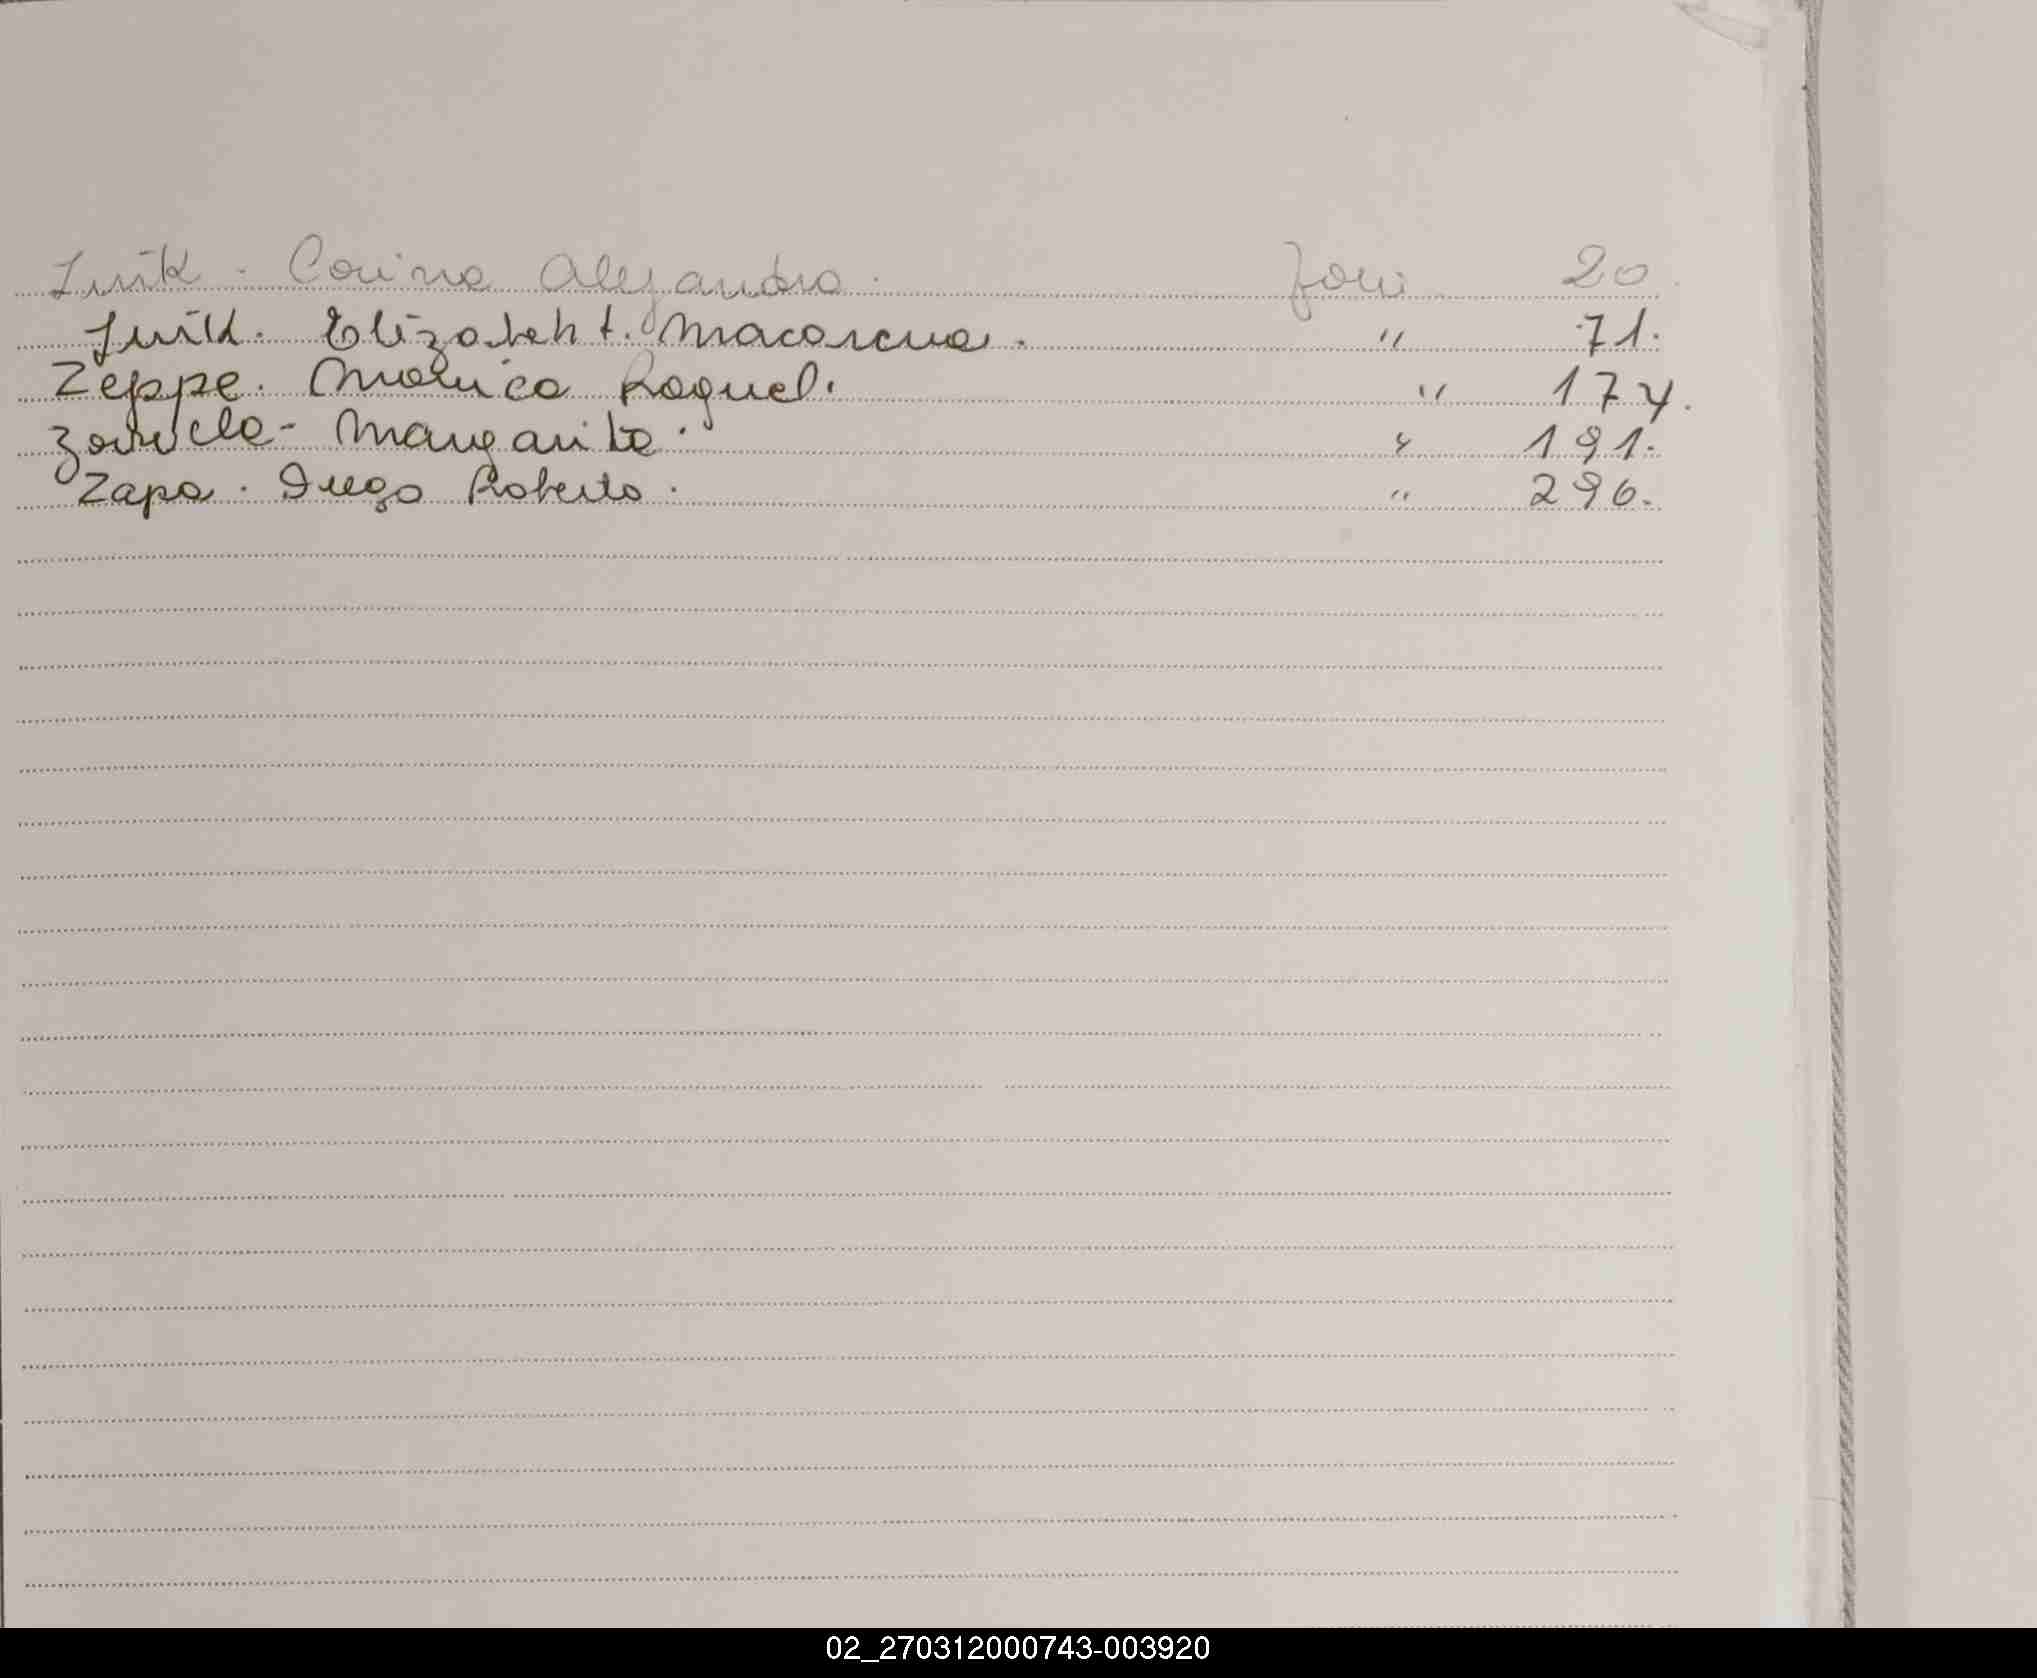 Zurik. Corina Alejandra. Folio 20
Zurik. Elizabeht. Macarena. " 71.
Zeppe. Monica Raquel. " 174.
Margarita. " 191.
Zapa. Diego Roberto. " 296.
02_270312000743-003920